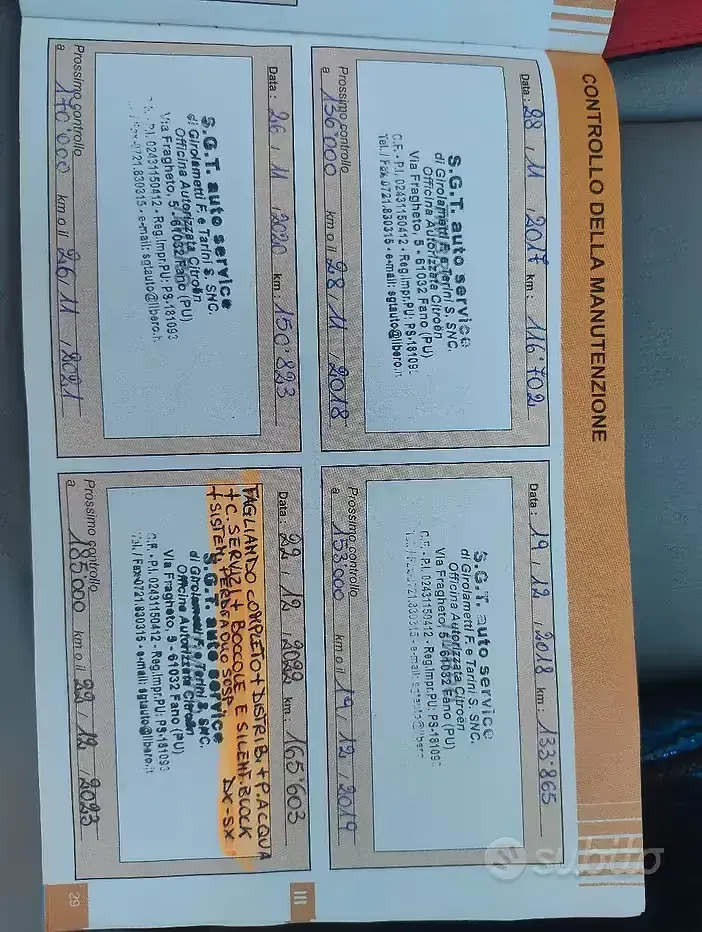 CONTROLLO DELLA MANUTENZIONE
Data: 28, 11, 2017 km: 116'702
S.G.T. auto service
di Girolametti F. e Tarini S. SNC.
Officina Autorizzata Citroën
Via Fragheto, 5 - 61032 Fano (PU)
C.F. - P.I. 02431150412 - Reg.Impr.PU: PS-18109
Tel. / Fax 0721.830315 - e-mail: sgtauto@libero.it
Prossimo controllo
a 136'000 km o il 28, 11, 2018
Data: 19, 12, 2018 km: 133.865
S.G.T. auto service
di Girolametti F. e Tarini S. SNC.
Officina Autorizzata Citroën
Via Fragheto, 5 - 61032 Fano (PU)
C.F. - P.I. 02431150412 - Reg.Impr.PU: PS-18109
0721.830315 - e-mail:
Prossimo controllo
a 153'000 km o il 19, 12, 2019
Data: 26, 11, 2020 km: 150'823
S.G.T. auto service
di Girolametti F. e Tarini S. SNC.
Officina Autorizzata Citroën
Via Fragheto, 5 - 61032 Fano (PU)
P.I. 02431150412 - Reg.Impr.PU: PS-181093
0721.830315 - e-mail: sgtauto@libero.it
Prossimo controllo
a 170'000 km o il 26, 11, 2021
Data: 22, 12, 2022 km: 165'603
TAGLIANDO COMPLETO + DISTRIB. + P. ACQUA
+ C. SERVIZI + BOCCOLE E SILENT. BLOCK
DX-SX
S.G.T. auto service
di Girolametti F. e Tarini S. SNC.
Officina Autorizzata Citroën
Via Fragheto, 5 - 61032 Fano (PU)
C.F. - P.I. 02431150412 - Reg.Impr.PU: PS-181093
Tel. / Fax 0721.830315 - e-mail: sgtauto@libero.it
Prossimo controllo
a 185'000 km o il 22, 12, 2023
III
29
subito